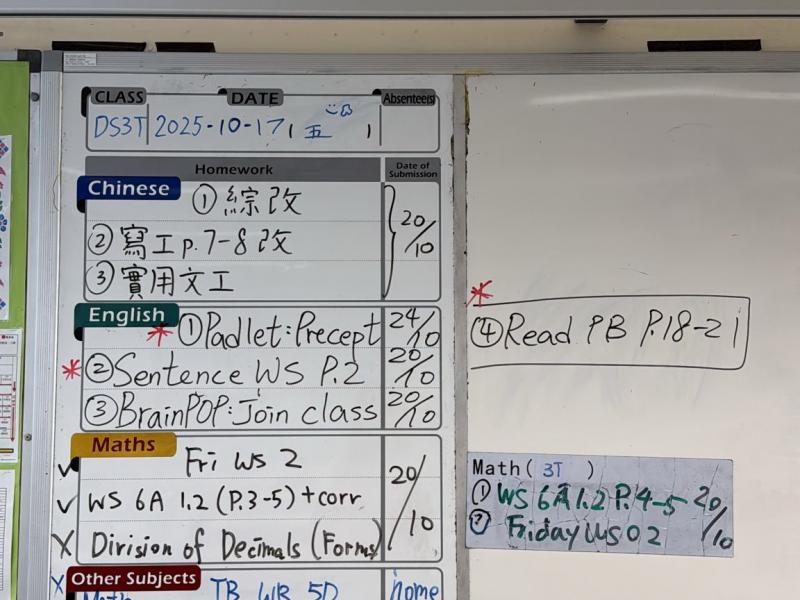 CLASS DATE Absentee(s)
DS3T 2025-10-17 ( 五 )
Homework Date of Submission
Chinese
① 綜改
② 寫工 p.7-8 改
③ 實用文工
20/10
English
* ① Padlet: Precept 24/10
* ② Sentence WS P.2 20/10
③ BrainPOP: Join class 20/10
* ④ Read PB P.18-21
Maths
✓ Fri WS 2
✓ WS 6A 1.2 (P.3-5) + corr
X Division of Decimals (Forms)
20/10
Math( 3T )
① WS 6A 1.2 P.4-5
② Friday WS 02
20/10
Other Subjects
X Math TB WB 5D home